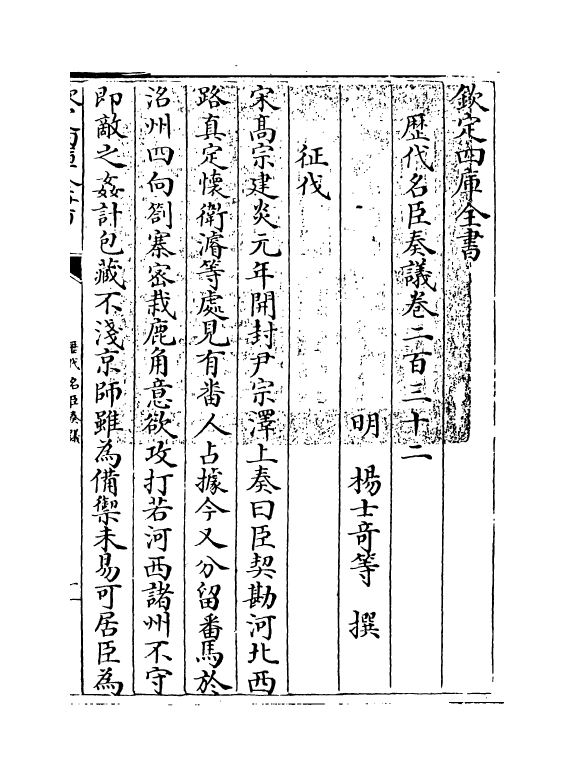 欽定四庫全書
歴代名臣奏議巻二百三十二
明　楊士竒等　撰
征伐
宋髙宗建炎元年開封尹宗澤上奏曰臣契勘河北西
路真定懐衛濬等處見有畨人占據今又分留番馬於
洺州四向劄寨宻栽鹿角意欲攻打若河西諸州不守
即敵之姦計包藏不淺京師雖為備禦未易可居臣為
歴代名臣奏議